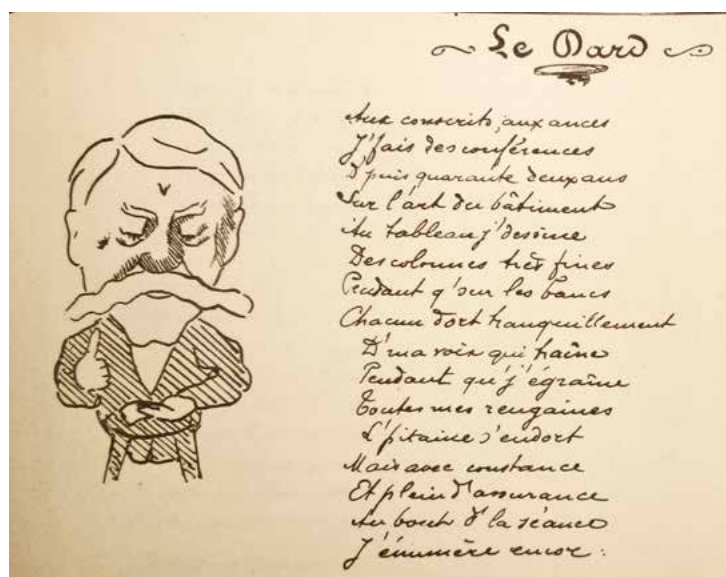 Le Dard
Aux conscrits, aux ances
J'fais des conférences
D'puis quarante deux ans
Sur l'art du bâtiment
Au tableau j'dessine
Des colonnes très fines
Pendant q'sur les bancs
Chacun dort tranquillement
D'ma voix qui traîne
Pendant qu'j'égraîne
Toutes mes rengaines
L'pitaine s'endort
Mais avec constance
Et plein d'assurance
Au bout d'la séance
J'énumère encor :